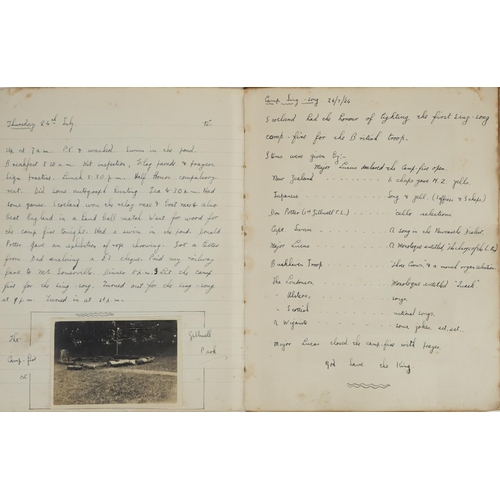 Thursday 24th July
Up at 7 a.m. P.T. & washed. Swim in the pond.
Breakfast 8.10 a.m. Kit inspection, Flag parade & prayers
Sign practice. Lunch 1.10 p.m. Half Hours compulsory
rest. Did some autograph hunting. Tea 4.30 a.m. Had
some games. Scotland won the relay race & Scot next also
beat England in a hand ball match. Went for wood for
the camp fire tonight. Had a swim in the pond. Donald
Potter gave an exhibition of rope throwing. Got a letter
from Dad enclosing a £1 cheque. Paid my railway
fare to Mr Somerville. Dinner 8 p.m. Lit the camp
fire for the sing-song. Turned out for the sing-song
at 9 p.m. Turned in at
The
Camp-fire
at
Gilwell
Park
Camp Sing-song 24/7/24
Scotland had the honour of lighting the first sing-song
camp-fire for the British troop.
Items were given by:-
Major Lucas declared the camp-fire open.
New Zealand . . . . . . . 6 chaps gave N.Z. yells.
Japanese . . . . . . . Song & yell. (1 officer & 3 chaps)
Don Potter (1st Gilwell T.L.) . . . . . 'cello selections
Capt. . . . . . . . A song in the dialect.
Major Lucas . . . . . . . A Monologue entitled,
Troop . . . . . . . & a mouth organ selection
The Londoners . . . . . . . Monologue entitled "
" Ulsters, . . . . . . . songs
" Scottish . . . . . . . national songs.
A . . . . . . . some jokes ect. ect.
Major Lucas closed the camp-fire with prayer.
God save the King.